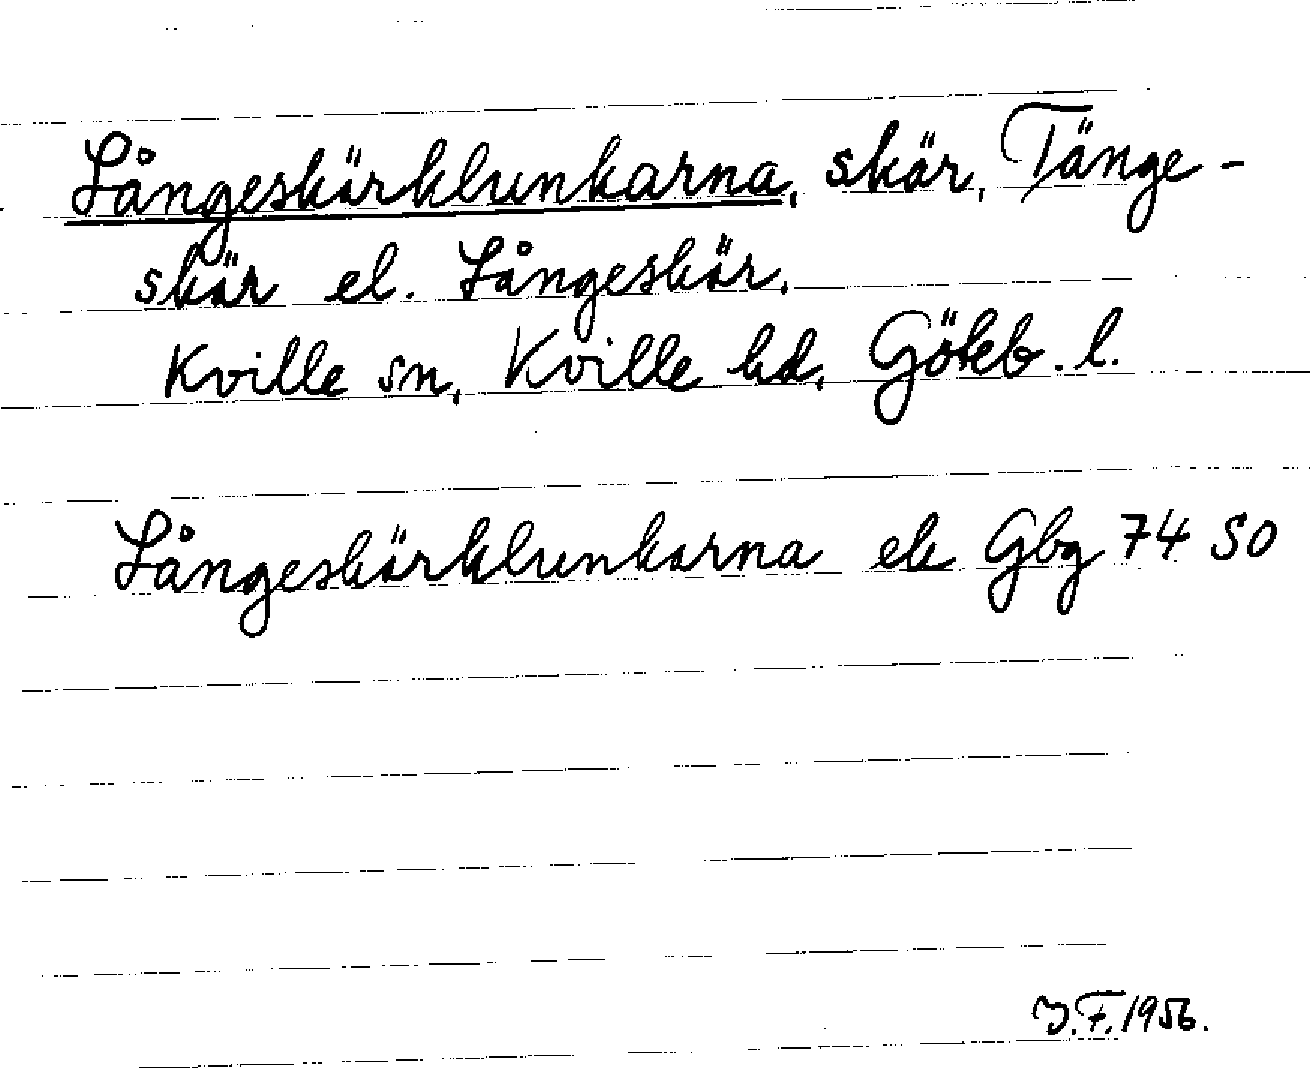 Långeskärklunkarna, skär, Tänge-
skär el. Långeskär,
Kville sn, Kville hd, Göteb. l.
Långeskärklunkarna ek Gbg 74 SO
J.F. 1956.